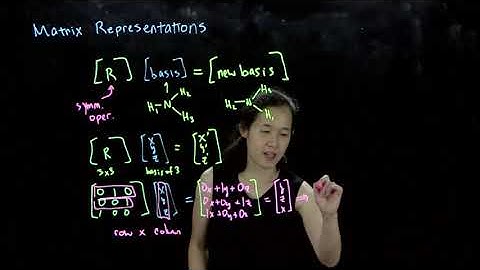 Matrix Representations
[R] [basis] = [new basis]
symm. oper.
H1 N H2 H3
[R] [x y z] = [x' y' z']
3x3 basis of 3
0 1 0 = 0x+1y+0z = y
0x+0y+1z z
1 0 0 1x+0y+0z x
row x column